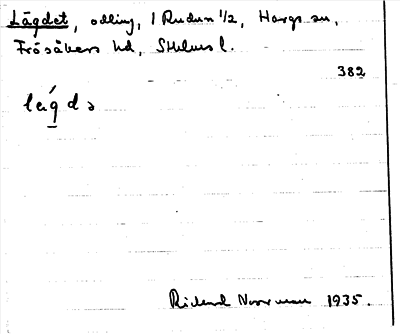 Lägdet, odling, 1 Rudun 1/2, Hargs sn,
Frösåkers hd, Sthlms l.
382
lag̣də
Rickard Norrman 1935.